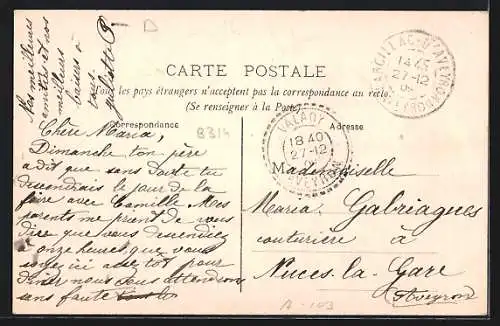 Nos meilleures
amitiés et nos
meilleurs
baisers à
tous.
Juliette G
D
CARTE POSTALE
Tous les pays étrangers n'acceptent pas la correspondance au recto.
(Se renseigner à la Poste)
Correspondance
Adresse
MARCILLAC-D'AVEYRON
14 45
27-12
AVEYRON
VALADY
18 40
27-12
AVEYRON
8314
Chère Maria,
Dimanche ton père
a dit que sans doute tu
descendrais le jour de la
foire avec Camille Mes
parents me prient de vous
dire que vous descendiez
à onze heures, que vous
ici tôt pour
dîner nous vous attendrons
sans faute
Mademoiselle
Maria Gabriagues
couturière à
Nuces-la-Gare
(Aveyron)
A-103